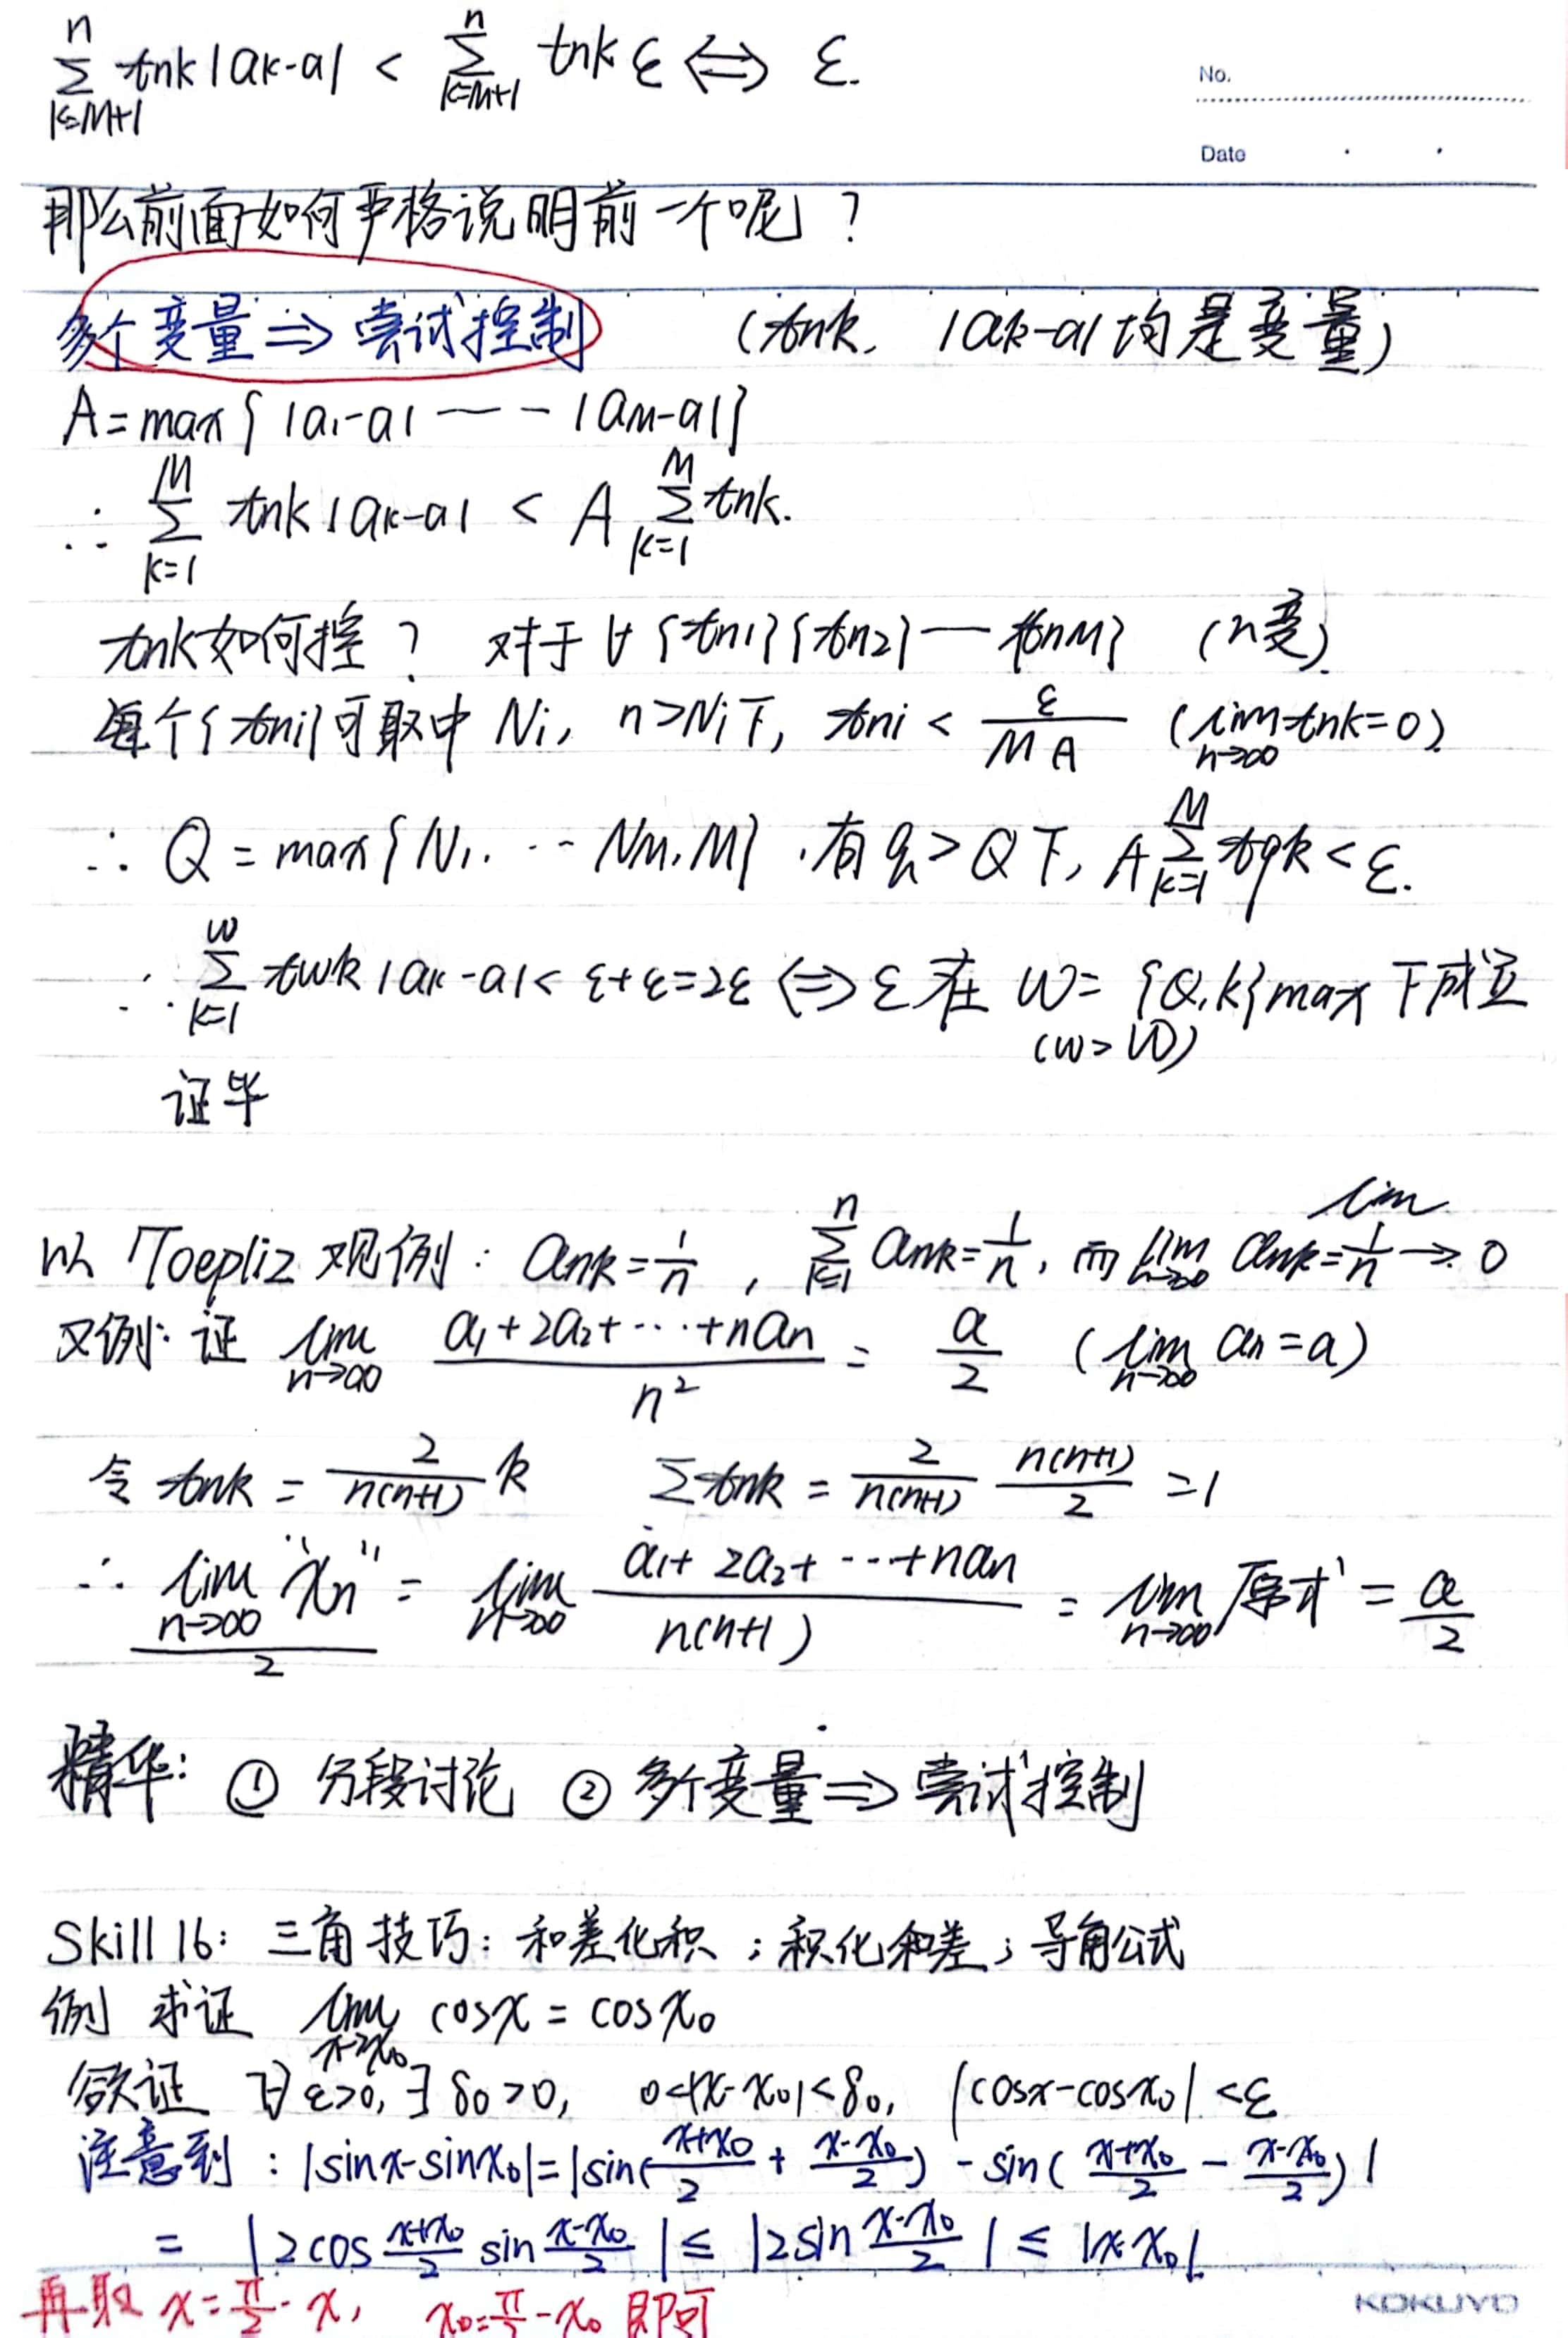 n∑k=M+1 tnk|ak-a| < n∑k=M+1 tnk ε ⟺ ε.
No.
Date
那么前面如何严格说明前一个呢？
多个变量⇒尝试控制 (tnk, |ak-a|均是变量)
A=max{|a₁-a| —— |aM-a|}
∴ M∑k=1 tnk|ak-a| < A M∑k=1 tnk.
tnk如何控？ 对于∀{tn1}{tn2}—{tnM} (n变)
每个{tni}可取中 Ni, n>Ni下, tni < ε/MA (lim n→∞ tnk=0)
∴ Q = max{N₁. ⋯ NM, M} , 有q>Q下, A M∑k=1 tqk < ε.
∴ w∑k=1 twk|ak-a| < ε+ε=2ε ⟺ ε 在 W= {Q,k}max 下成立
(w>W)
证毕
以 Toepliz 观例: ank=1/n , n∑k=1 ank=1/n, 而 lim n→∞ ank= lim 1/n → 0
又例: 证 lim n→∞ (a₁+2a₂+⋯+nan)/n² = a/2 (lim n→∞ an=a)
令 tnk = 2/n(n+1) k ∑tnk = 2/n(n+1) n(n+1)/2 =1
∴ lim n→∞ "xn" /2 = lim n→∞ (a₁+2a₂+⋯+nan)/n(n+1) = lim n→∞ 原式 = a/2
精华: ① 分段讨论 ② 多个变量⇒尝试控制
Skill 16: 三角技巧: 和差化积 ; 积化和差 ; 导角公式
例 求证 lim x→x₀ cosx = cosx₀
欲证 ∀ε>0, ∃δ₀>0, 0<|x-x₀|<δ₀, |cosx-cosx₀|<ε
注意到 : |sinx-sinx₀|=|sin(x+x₀/2 + x-x₀/2) - sin(x+x₀/2 - x-x₀/2)|
= |2cos x+x₀/2 sin x-x₀/2| ≤ |2sin x-x₀/2| ≤ |x-x₀|
再取 x=π/2-x, x₀=π/2-x₀ 即可
KOKUYO